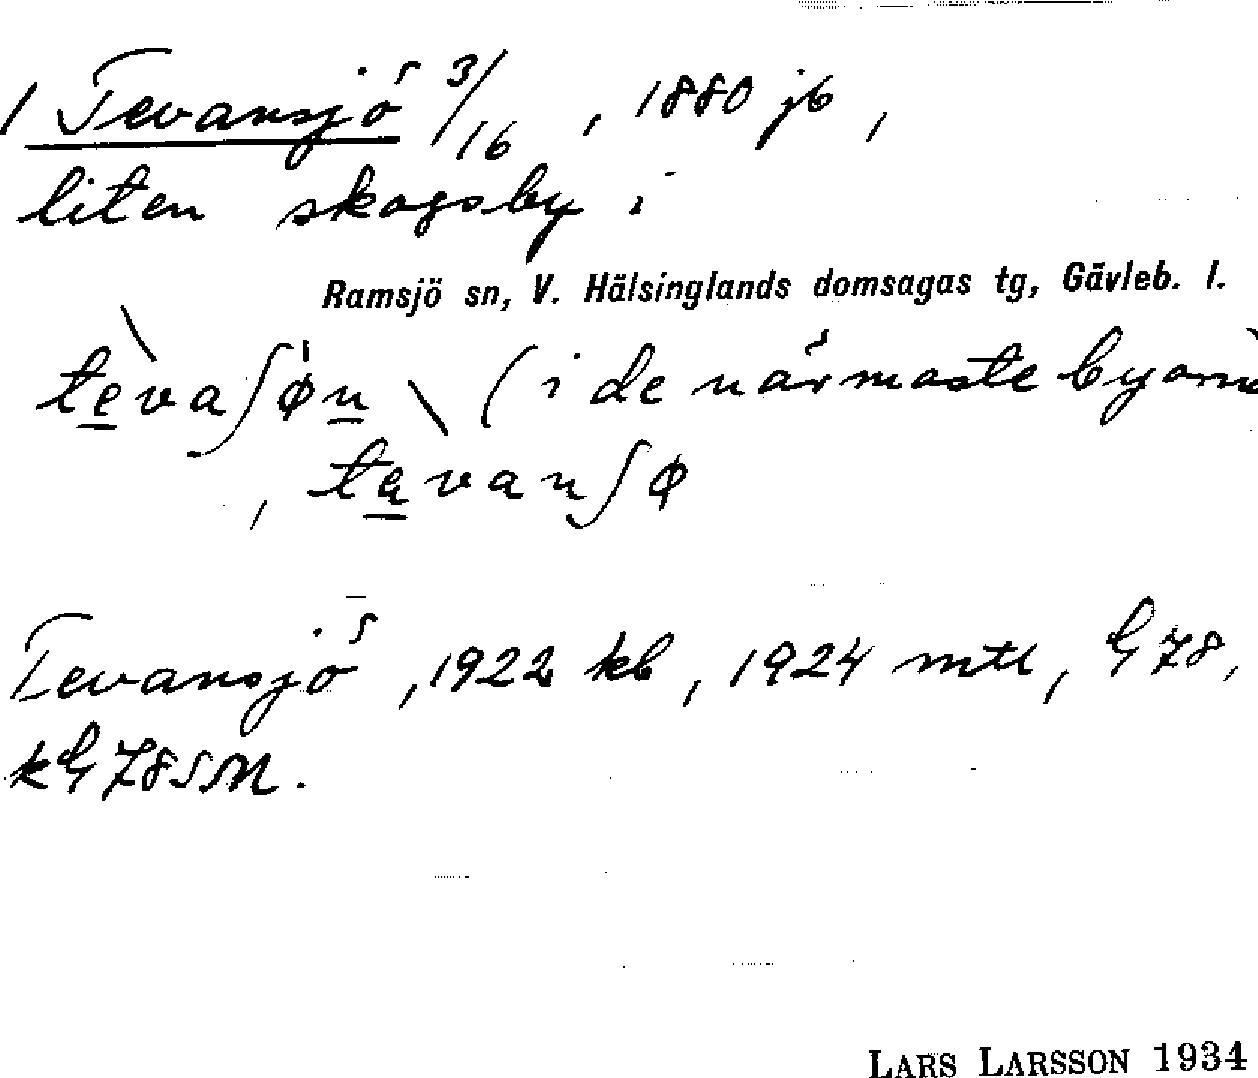 1 Tevansjö 3/16, 1880 jb,
liten skogsby i
Ramsjö sn, V. Hälsinglands domsagas tg, Gävleb. l.
te̲vaʃøn̲ \ (i de närmaste byarna
, ta̲vanʃø
Tevansjö, 1922 kb, 1924 mtl, G 78,
kG 78 SM.
LARS LARSSON 1934